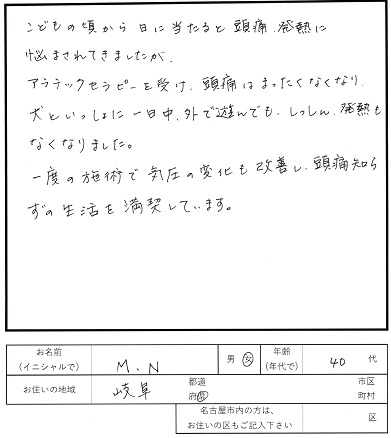 こどもの頃から日に当たると頭痛、発熱に
悩まされてきましたが、
アラテックセラピーを受け、頭痛はまったくなくなり、
犬といっしょに一日中、外で遊んでも、しっしん、発熱も
なくなりました。
一度の施術で気圧の変化も改善し、頭痛知ら
ずの生活を満契しています。
お名前
(イニシャルで)
M.N
男 女
年齢
(年代で)
40 代
お住いの地域
岐阜
都道
府県
市区
町村
名古屋市内の方は、
お住いの区もご記入下さい
区